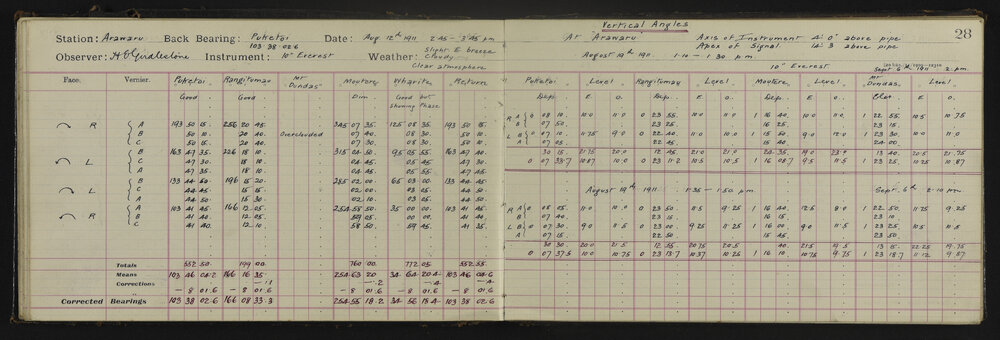 Station: Arawaru Back Bearing: Puketoi Date: Aug 12th 1911 2.45 - 3.45 pm
103 38 02.6
Observer: Instrument: 10" Everest Weather: Slight E breeze
Cloudy
Clear atmosphere
Face. Vernier. Puketoi Rangitumau Mt Dundas Moutere Wharite Return
Good Good Dim Good but
Showing Phase
R A 193 50 15. 256 20 45. 345 07 35. 125 08 35. 193 50 15.
B 50 10. 20 40. Overclouded 07 40. 08 30. 50 10.
C 50 15. 20 40. 07 30. 08 30. 50 10.
L B 163 47 35. 226 18 10. 315 04 50. 95 05 55. 163 47 40.
C 47 30. 18 10. 04 45. 05 45. 47 30.
A 47 35. 18 10. 04 45. 05 55. 47 45.
L C 133 44 50. 196 15 20. 285 02 00. 65 03 00. 133 44 45.
A 44 45. 15 15. 02 00. 03 05. 44 50.
B 44 50. 15 30. 02 10. 03 05. 44 50.
R A 103 41 45. 166 12 05. 254 58 50. 35 00 00. 103 41 45.
B 41 40. 12 05. 59 05. 00 00. 41 44.
C 41 40. 12 10. 58 50. 59 45. 41 35.
Totals 552 50. 199 00. 760 00. 772 05. 552 55.
Means 103 46 04.2 166 16 35. 254 63 20 34 64 20.4 103 46 04.6
Corrections - .1 - .2 - .4 - .4
- 8 01.6 - 8 01.6 - 8 01.6 - 8 01.6 - 8 01.6
Corrected Bearings 103 38 02.6 166 08 33.3 254 55 18.2 34 56 18.4 103 38 02.6
Vertical Angles
28
At Arawaru Axis of Instrument 4' 0" above pipe
Apex of Signal 14' 3 above pipe
August 19th 1911 1.10 - 1.30 pm. 10" Everest
Sept 6th 1911 - 2 pm.
Puketoi Level Rangitumau Level Moutere Level Mt Dundas Level
Dep. E. O. Dep. E. O. Dep. E. O. Elev. E O.
R A 0 08 10. 11.0 10.0 0 23 55. 11.0 10.5 1 16 40 10.0 11.0 1 22 55. 10.5 10.75
B 07 50. 23 25. 16 25. 23 15.
L B 0 07 10. 11.75 9.0 0 22 40. 11.0 10.0 1 15 50 9.0 12.0 1 23 30. 10.0 11.0
A 07 05. 22 45. 15 40. 24 00.
30 15. 21.75 20.0 12 45. 21.0 21.0 24.35 19.0 23.0 13 40. 20.5 21.75
0 07 33.7 10.87 10.0 0 23 11.2 10.5 10.5 1 16 08.7 9.5 11.5 1 23 25. 10.25 10.87
August 19th 1911. 1.35 - 1.50 pm. Sept. 6th 2.10 pm
R A 0 08 05. 11.0 10.0 0 23 50. 11.5 9.25 1 16 40. 12.5 8.0 1 22 50. 11.25 9.25
B 07 40. 23 15. 16 15. 23 10.
L B 0 07 30. 9.0 11.5 0 23 00. 9.25 11.25 1 16 00. 9.0 11.5 1 23 25. 10.5 11.5
A 07 15. 22 50. 15 45. 23 50.
30 30. 20.0 21.5 12 55. 20.75 20.5 40. 21.5 19.5 13 15. 22.25 19.75
0 07 37.5 10.0 10.75 0 23 13.7 10.37 10.25 1 16 10 10.75 9.75 1 23 18.7 11.12 9.87